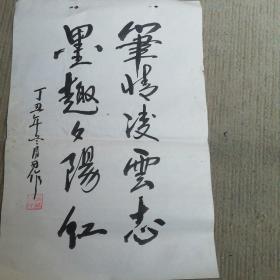 筆情凌雲志
墨趣夕陽紅
丁丑年冬月